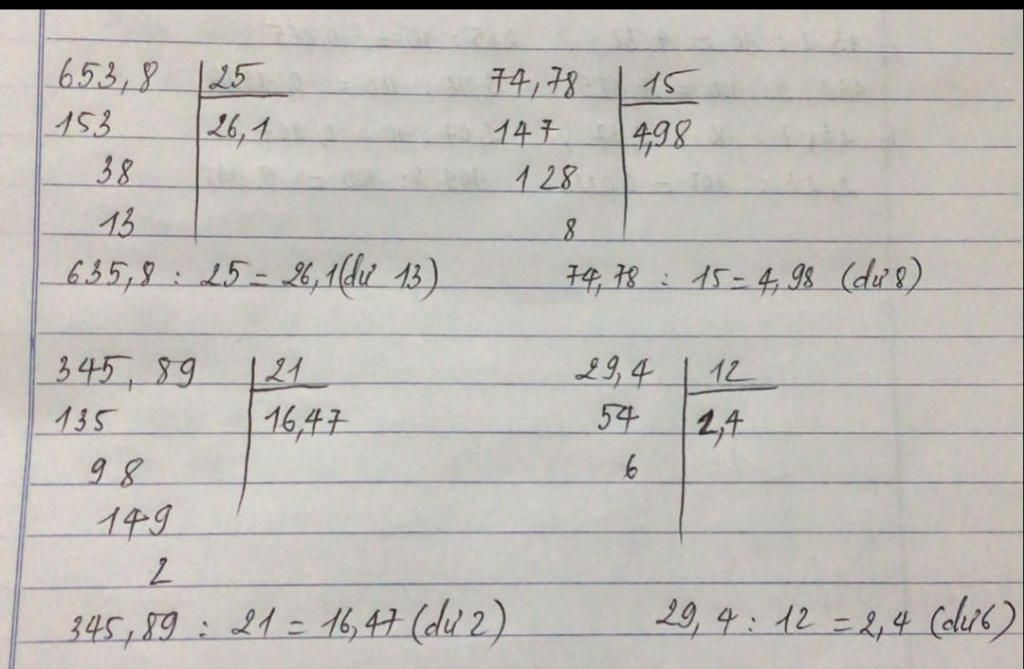 653,8 25 74,78 15
153 26,1 147 4,98
38 128
13 8
635,8 : 25 = 26,1 (dư 13) 74,78 : 15 = 4,98 (dư 8)
345,89 21 29,4 12
135 16,47 54 2,4
98 6
149
2
345,89 : 21 = 16,47 (dư 2) 29,4 : 12 = 2,4 (dư 6)